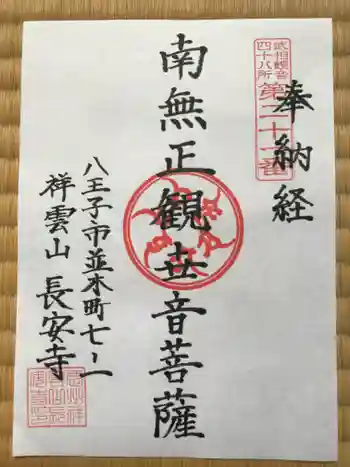 奉納経
武相観音
四十八所
第二十一番
南無正観世音菩薩
八王子市並木町七ノ一
祥雲山 長安寺